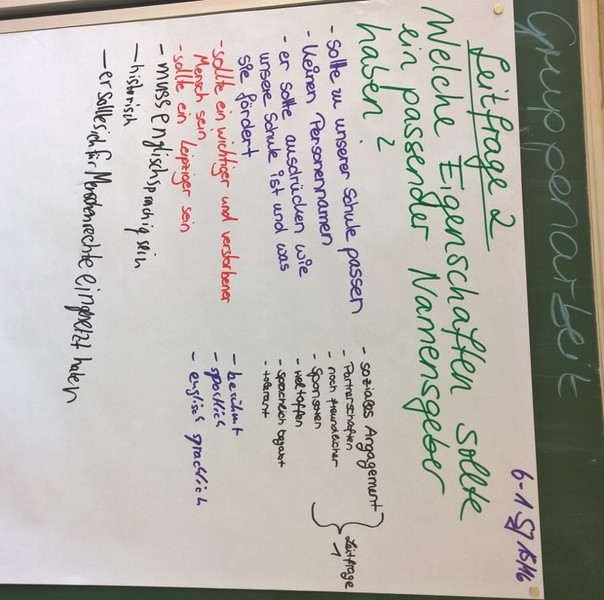 Gruppenarbeit
6-1 SJ 15/16
Leitfrage 2
Welche Eigenschaften sollte
ein passender Namensgeber
haben?
- sollte zu unserer Schule passen
- keinen Personennamen
- er sollte ausdrücken wie
unsere Schule ist und was
sie fördert
- sollte ein wichtiger und verstorbener
Mensch sein
- sollte ein Leipziger sein
- muss englischsprachig sein
- historisch
- er sollte sich für Menschenrechte eingesetzt haben
- soziales Argagement
- Partnerschaften
- noch freundlicher
- Sponsoren
- weltoffen
- sprachlich begabt
- tolerant
} Leitfrage
1
- berühmt
- sportlich
- englisch sprachlich